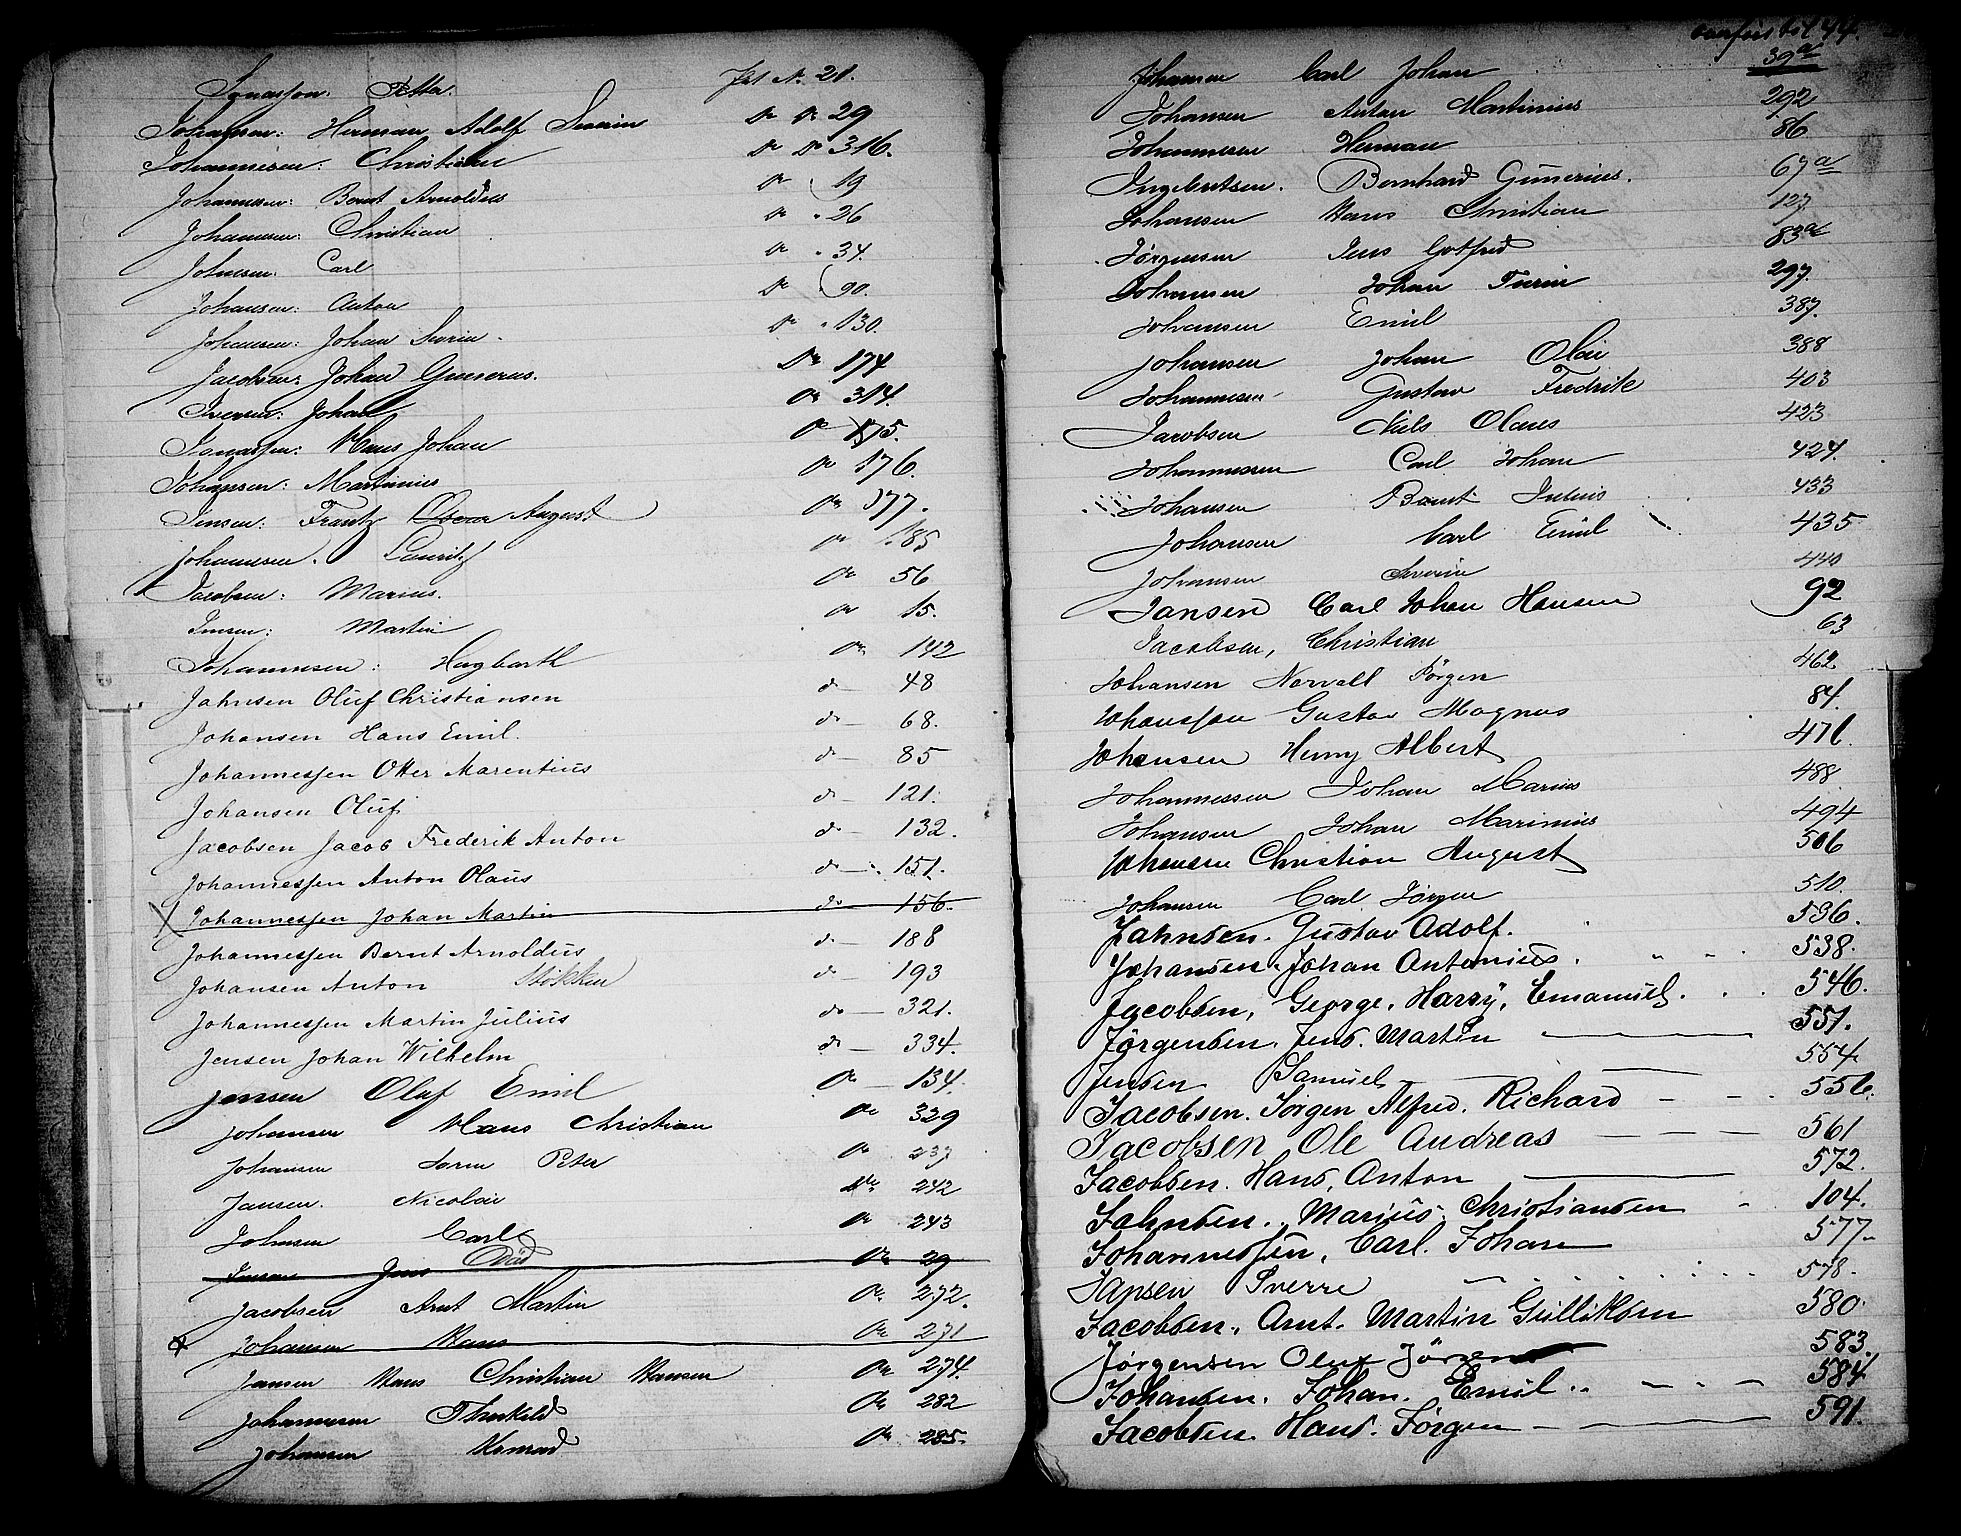 Jonassen. Petter. Pat No. 21.
Johansen: Herman Adolf Severin do do 29
Johannesen: Christian do do 316.
Johannesen: Bernt Arnoldus do 19
Johannesen: Christian do " 26
Johnsen: Carl do " 34.
Johansen: Anton do 90.
Johansen: Johan Severin. do " 130.
Jacobsen: Johan Gunerus. do 174
Iversen: Johan do 314.
Jonassen: Hans Johan do 175.
Johansen: Martinius do 176.
Jensen: Frantz Oscar August do 177.
Johannesen. Lauritz do 185
Jacobsen: Marius. do 56
Jensen: Martin do 15.
Johannesen: Hagbarth do 142
Jahnsen Oluf Christiansen do — 48
Johansen Hans Emil. do — 68.
Johannessen Otter Marentius do — 85
Johansen Oluf do — 121.
Jacobsen Jacob Frederik Anton do — 132.
Johannessen Anton Olaus do — 151.
Johannessen Johan Martin do 156.
Johannessen Bernt Arnoldus do — 188
Johansen Anton Stökken do — 193
Johannessen Martin Julius do — 321.
Jensen Johan Wilhelm do — 334.
Jenssen Olaf Emil do — 134.
Johansen Hans Christian do 329
Johansen Sørin Peter do 237
Jansen. Nicolai do 242
Johnsen Carl do 243
Jensen Jens Död do 29
Jacobsen Arnt Martin do 272.
Johansen Hans do 271
Jansen Hans Christian Hansen do 274.
Johannesen Thorkild do 282
Johansen Konrad do 285.
144.
Johansen Carl Johan 39a
Johansen Anton Martinius 292
Johannesen Herman 86
Ingebertsen. Bernhard Gunerius. 67a
Johansen Hans Christian 127
Jørgensen Jens Gotfred 83a
Johansen Johan 297.
Johansen Emil 387.
Johansen Johan Olai 388
Johannesen Gustav Fredrik 403
Jacobsen Nils Olaus 423
Johannessen Carl Johan 424.
Johansen Bernt Julius 433
Johansen Carl Emil 435
Johansen Severin 440
Jansen Carl Johan Hansen 92
Jacobsen, Christian 63
Johansen Norvall Jörgen 462
Johanssen Gustav Magnus 84.
Johansen Henry Albert 471.
Johannessen Johan Marius 488
Johansen Johan Marinius 494
Johansen Christian August 506
Johansen Carl Jørgen 510.
Jahnsen. Gustav Adolf. 536.
Johansen. Johan Antonius. 538.
Jacobsen, George, Harry, Emanuel. 546.
Jørgensen. Jens. Martin 551.
Jensen Samuel 554.
Jacobsen. Jörgen Alfred. Richard 556.
Jacobsen Ole Andreas 561
Jacobsen. Hans, Anton 572.
Jahnsen. Marius. Christiansen 104.
Johannessen, Carl. Johan 577.
Jansen Sverre 578.
Jacobsen, Arnt. Martin Gulliksen 580.
Jørgensen Oluf Jörgen 583.
Johansen. Johan. Emil 584
Jacobsen. Hans. Jørgen 591.